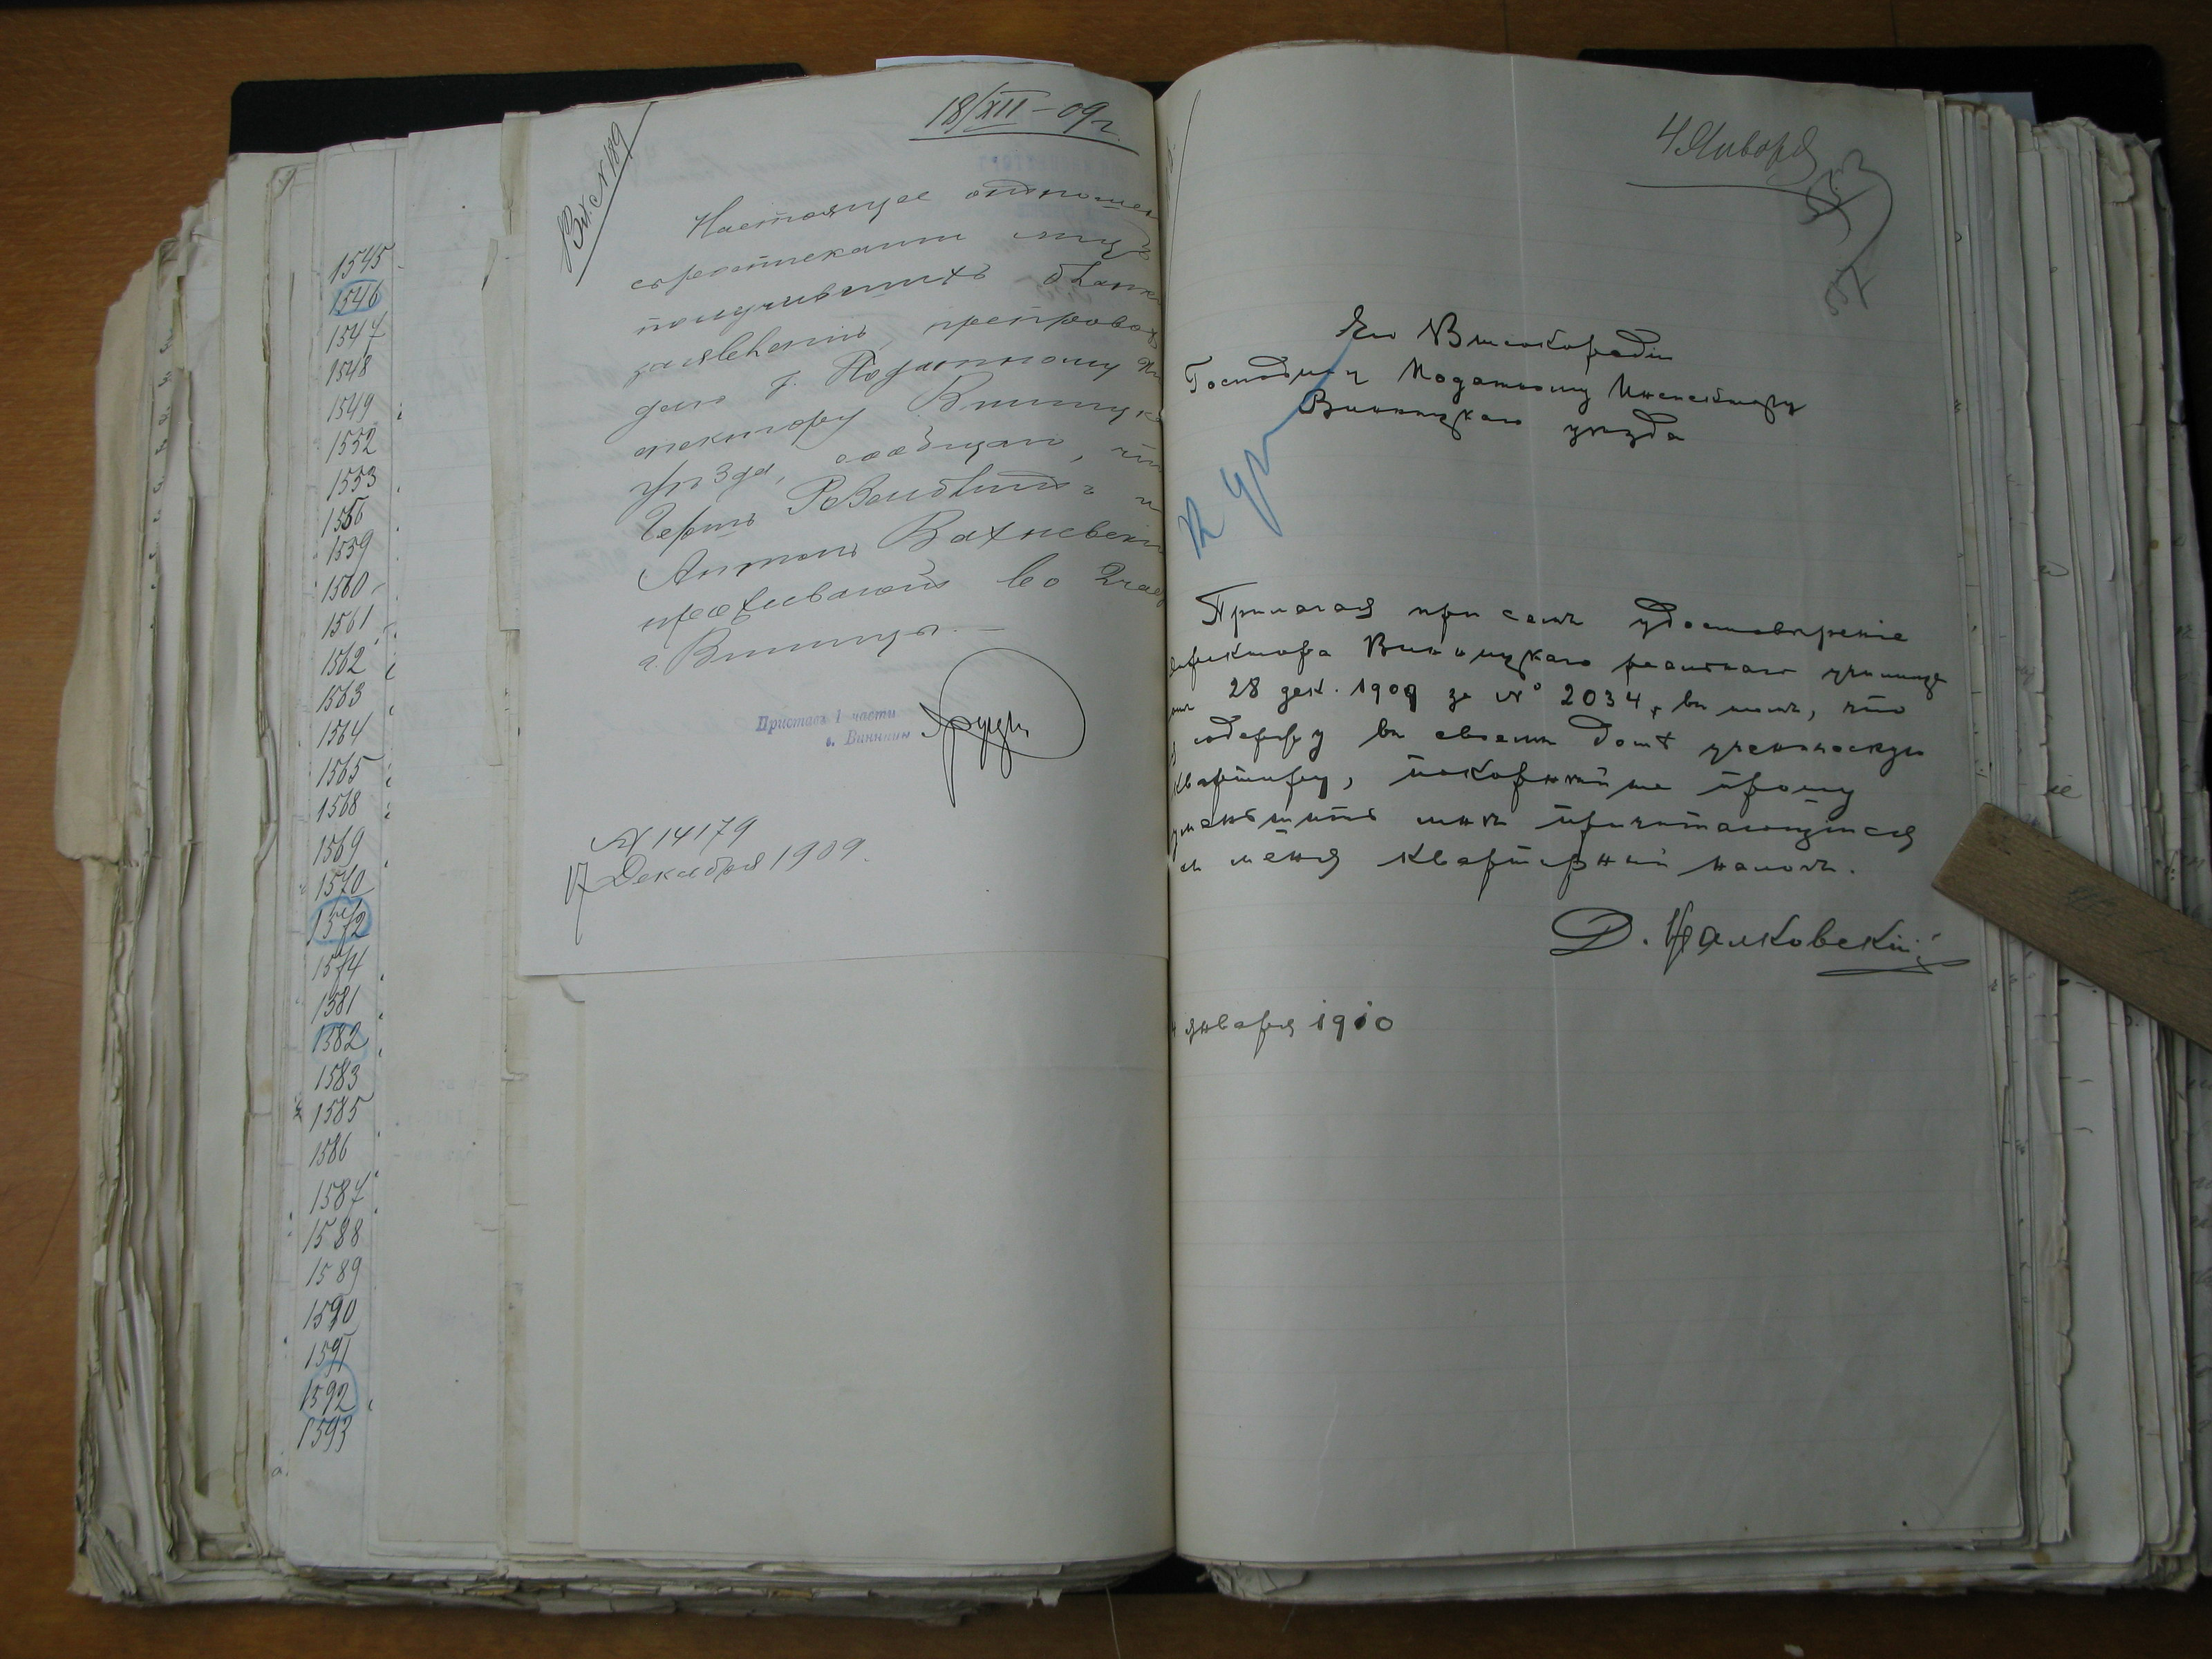 1545
1546
1547
1548
1549
1552
1553
1556
1559
1560
1561
1562
1563
1564
1565
1568
1569
1570
1572
1574
1581
1582
1583
1585
1586
1587
1588
1589
1590
1591
1592
1593
Вх. №189
18/XII – 09 г.
Настоящее отношен
съ росписками лицъ
получившихъ бланки
заявленій, препровож
даю г. Податному Ин
спектору Винницка
уѣзда, сообщаю, что
Антонъ Вахневскі
проживаютъ во 2 час
г. Винницы. —
Приставъ 1 части
г. Винницы
№ 14179
17 Декабря 1909.
4 Января
Его Высокородію
Господину Податному Инспектору
Винницкаго уѣзда
Прилагая при семъ удостовѣреніе
директора Винницкаго реальнаго училища
отъ 28 дек. 1909 за № 2034, въ томъ, что
я содержу въ своемъ домѣ ученическую
квартиру, покорнѣйше прошу
уменьшить мнѣ причитающійся
съ меня квартирный налогъ.
4 января 1910